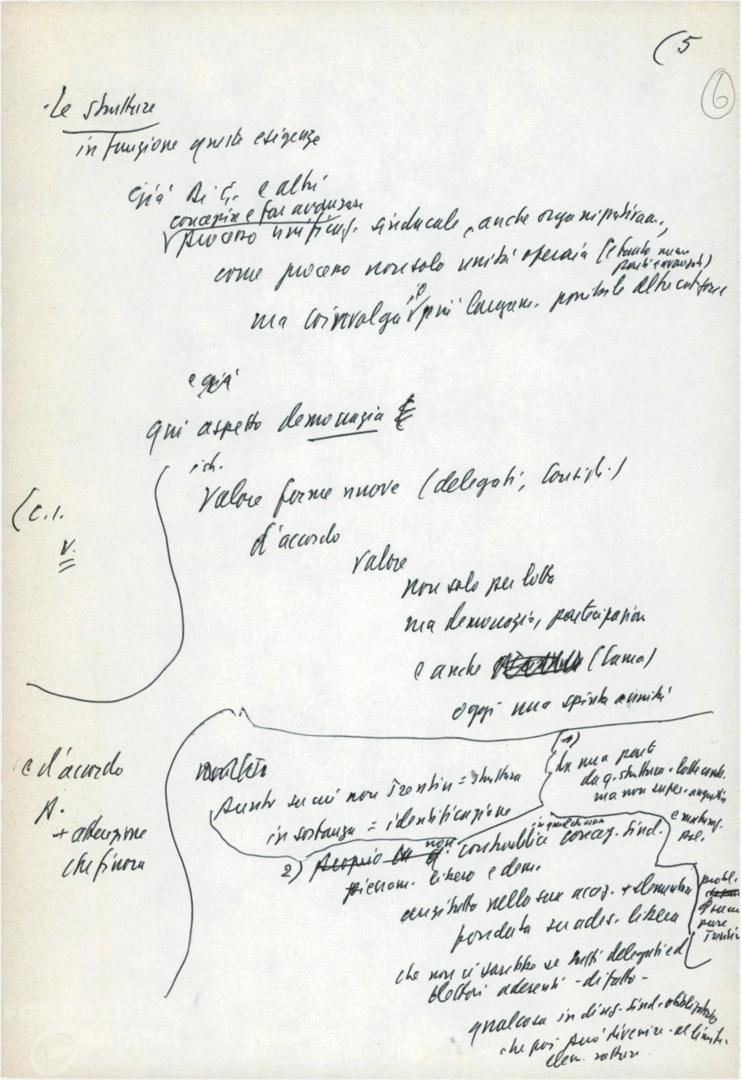 (5
6
· Le strutture
in funzione queste esigenze
già Di G. e altri
concepire e far avanzare
processo unificaz. sindacale, anche
come processo non solo unità operaia (e tanto meno
ma coinvolga il più largam. possibile altre cat. forze
e già
qui aspetto democrazia
ich.
Valore forme nuove (delegati, Consigli)
(C.I.
V.
d'accordo
Valore
non solo per lotta
ma democrazia, partecipazion
e anche (Lama)
oggi una spinta a unità
e d'accordo
A.
+ attenzione
che finora
Punto su cui non Trentin = struttura
in sostanza = identificazione
1)
da una parte
da q. struttura = lotte
ma non super.
2)
non
costruibile concez. sind.
pienam. libero e dem.
anzitutto nella sua accez. + elementare
fondata su ades. libera
probl.
pure
Trentin
che non vi sarebbe se tutti delegati ed
elettori aderenti - di fatto -
qualcosa in disc. sind. obbligatorio
che poi può divenire - al limite -
elem. rottura